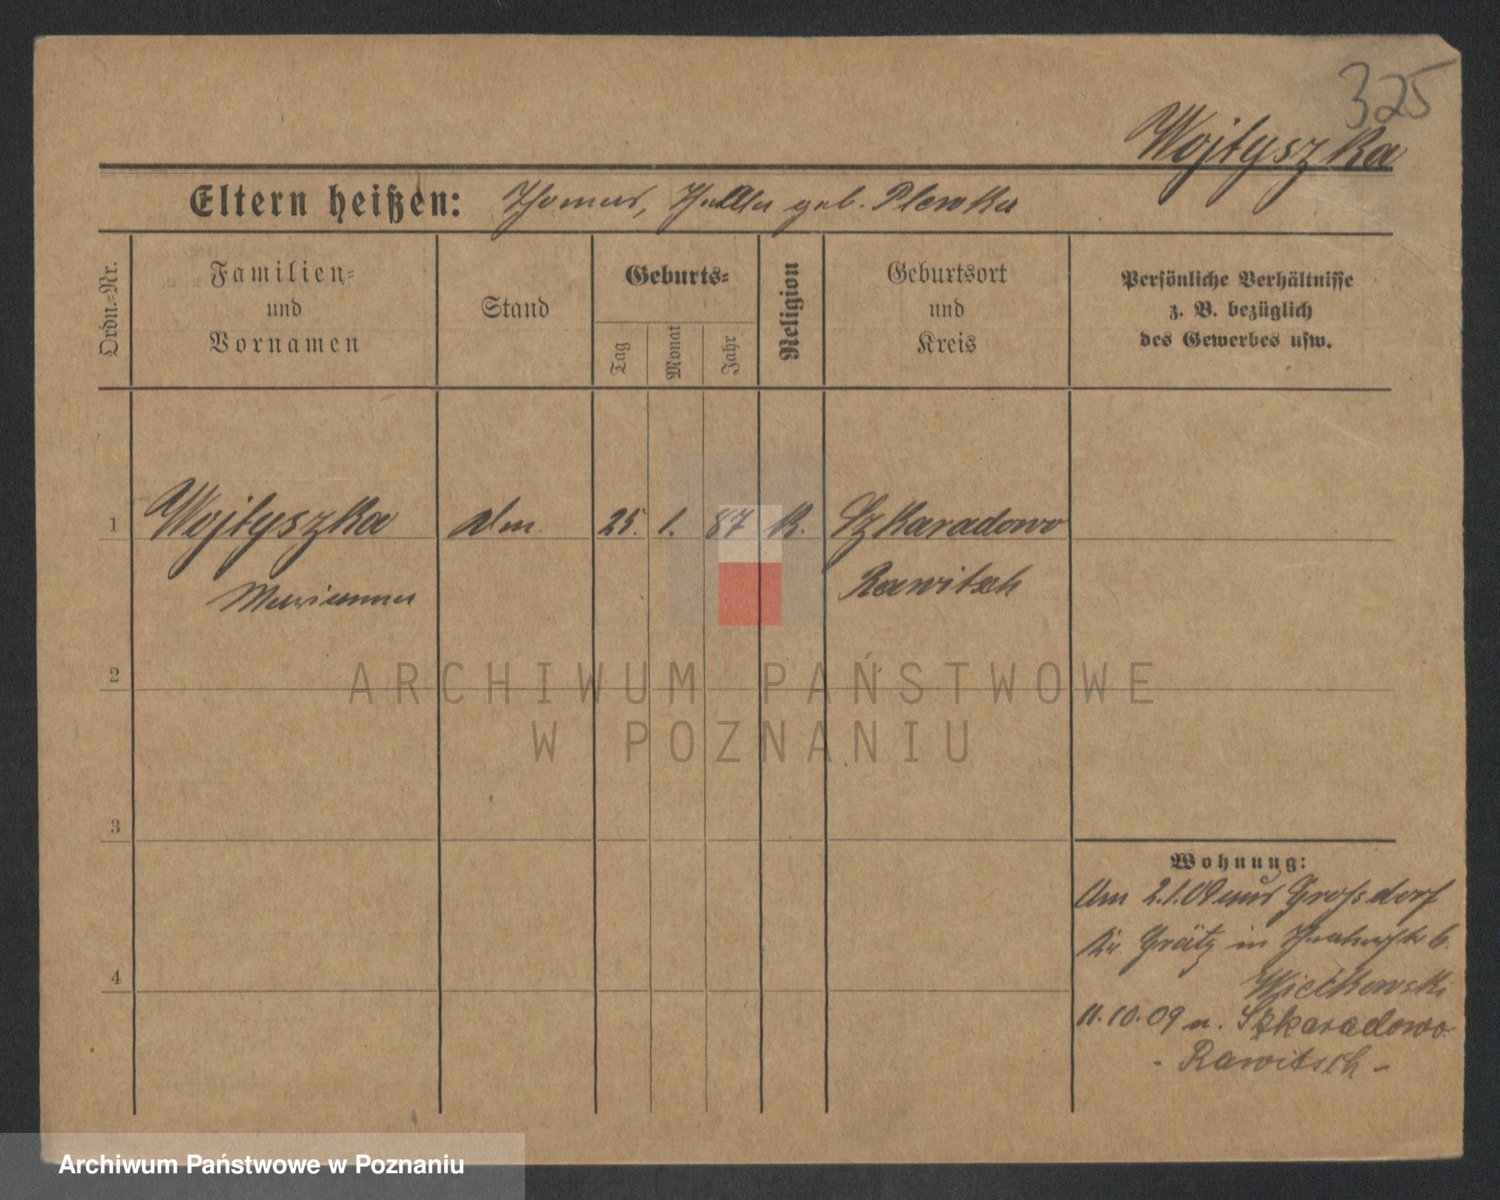 325
Wojtyszka
Eltern heißen: Thomas, geb. Plewka
Ordn.-Nr.
Familien-
und
Vornamen
Stand
Geburts-
Tag
Monat
Jahr
Religion
Geburtsort
und
Kreis
Persönliche Verhältnisse
z. B. bezüglich
des Gewerbes usw.
1 Wojtyszka 25. 1. 87 K. Szkaradowo
Marianna Rawitsch
2
ARCHIWUM PAŃSTWOWE
W POZNANIU
3
Wohnung:
Am 2.1.09 aus Grossdorf
Kr. Grätz in b.
4
Wieckowski
11.10.09 n. Szkaradowo
- Rawitsch -
Archiwum Państwowe w Poznaniu